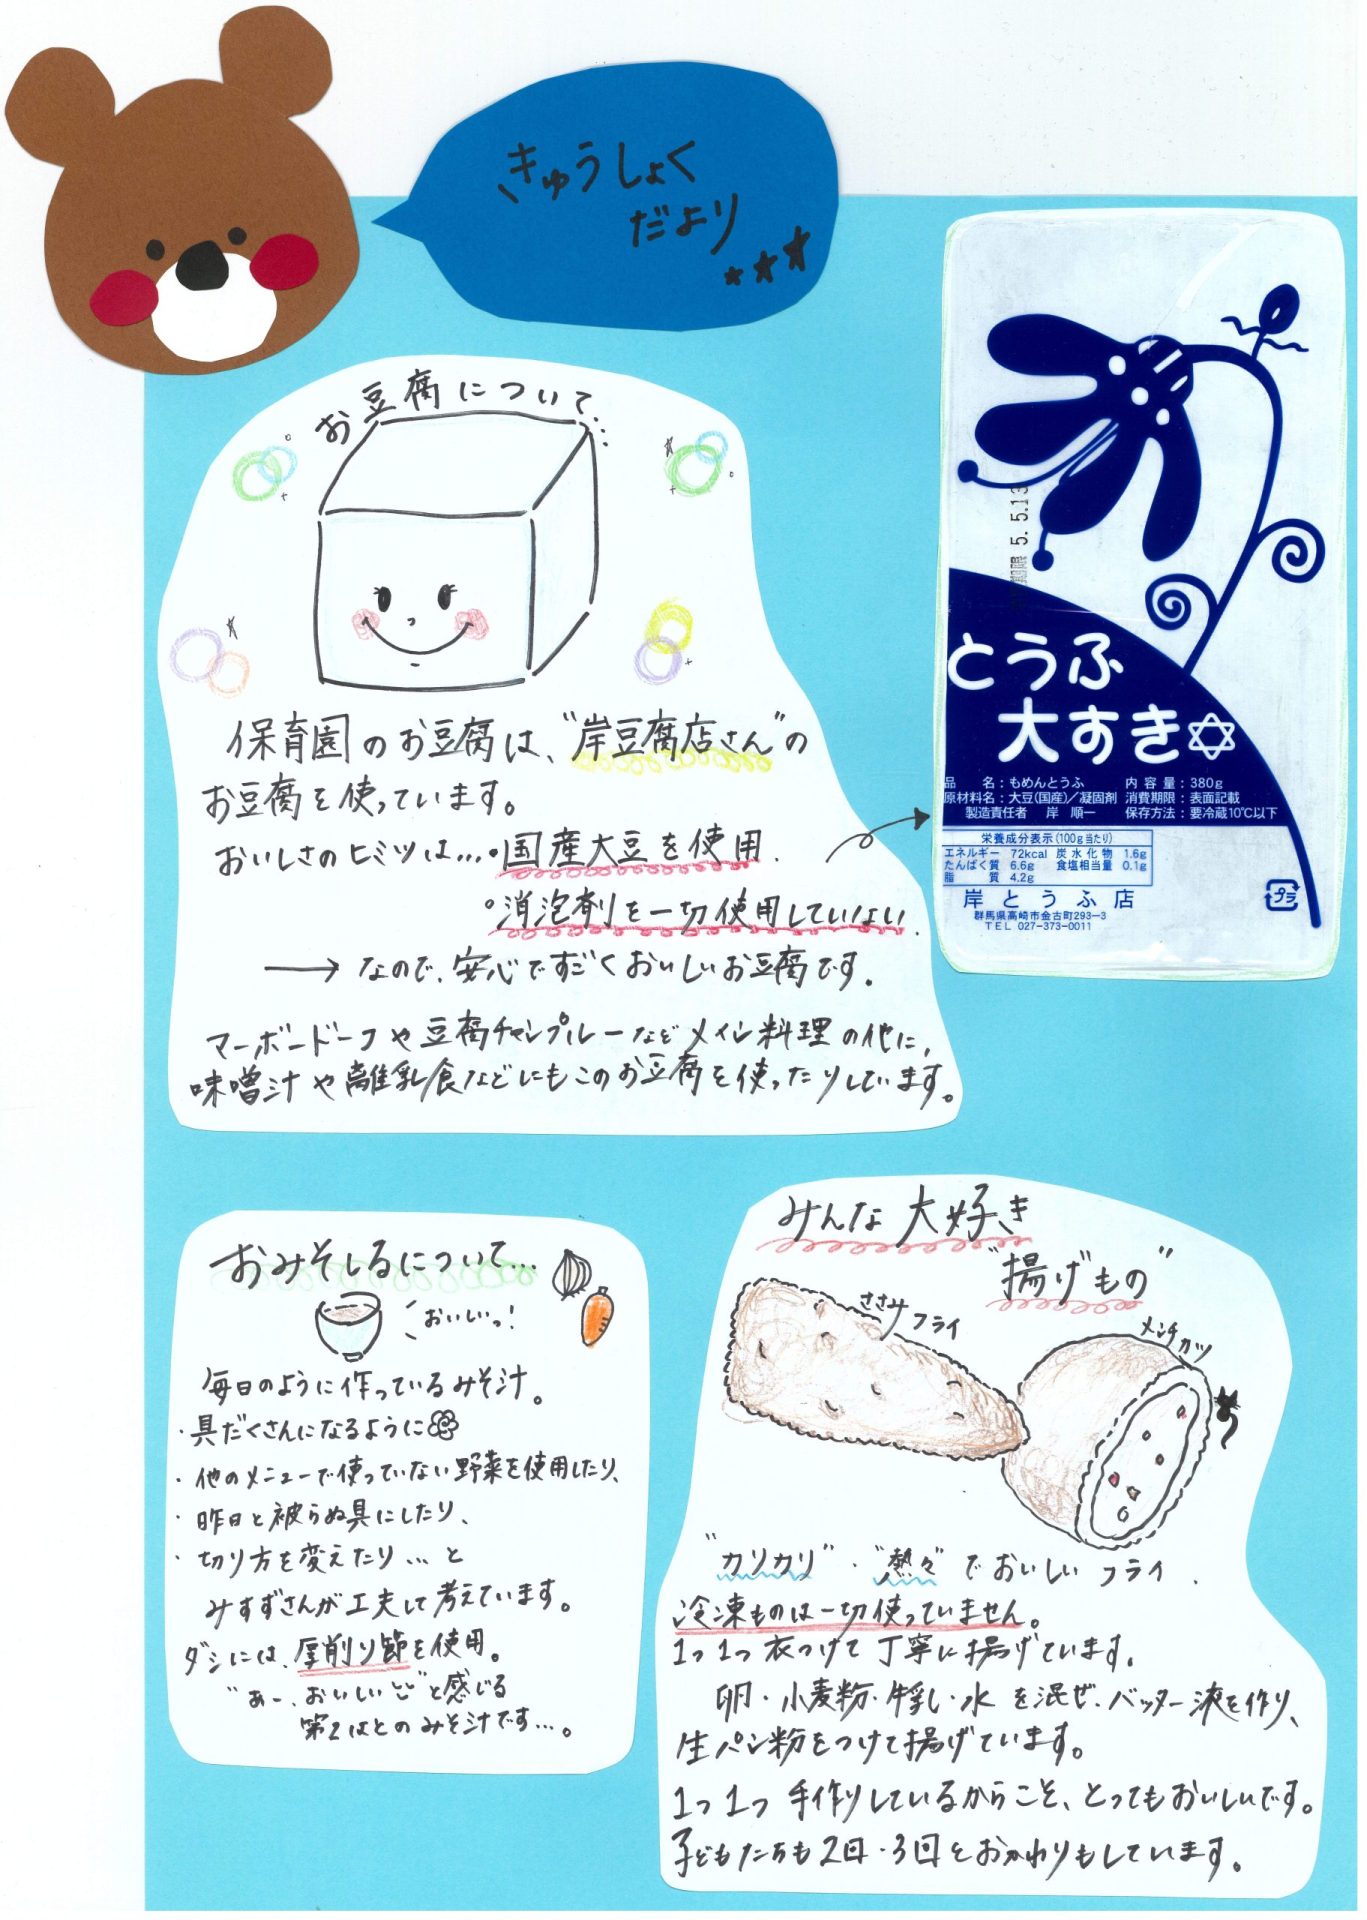 きゅうしょく
だより
お豆腐について…
保育園のお豆腐は、"岸豆腐店さん"の
お豆腐を使っています。
おいしさのヒミツは…・国産大豆を使用.
・消泡剤を一切使用していない.
→なので、安心ですごくおいしいお豆腐です。
マーボードーフや豆腐チャンプルーなどメイン料理の他に,
味噌汁や離乳食などにもこのお豆腐を使ったりしています。
5. 5.13
とうふ
大すき
品名:もめんとうふ 内容量:380g
原材料名:大豆(国産)/凝固剤 消費期限:表面記載
製造責任者 岸 順一 保存方法:要冷蔵10℃以下
栄養成分表示(100g当たり)
エネルギー 72kcal 炭水化物 1.6g
たんぱく質 6.6g 食塩相当量 0.1g
脂質 4.2g
岸とうふ店
群馬県高崎市金古町293-3
TEL 027-373-0011
プラ
おみそしるについて…
おいしいっ!
毎日のように作っているみそ汁。
・具だくさんになるように
・他のメニューで使っていない野菜を使用したり、
・昨日と被らぬ具にしたり、
・切り方を変えたり…と
みすずさんが工夫して考えています。
ダシには、厚削り節を使用。
"あー、おいしい"と感じる
第2はとのみそ汁です…。
みんな大好き
"揚げもの"
ささみフライ
メンチカツ
"カリカリ"・"熱々"でおいしいフライ.
冷凍ものは一切使っていません。
1つ1つ衣つけて丁寧に揚げています。
卵・小麦粉・牛乳・水を混ぜ、バッター液を作り、
生パン粉をつけて揚げています。
1つ1つ手作りしているからこそ、とってもおいしいです。
子どもたちも2回・3回とおかわりもしています。